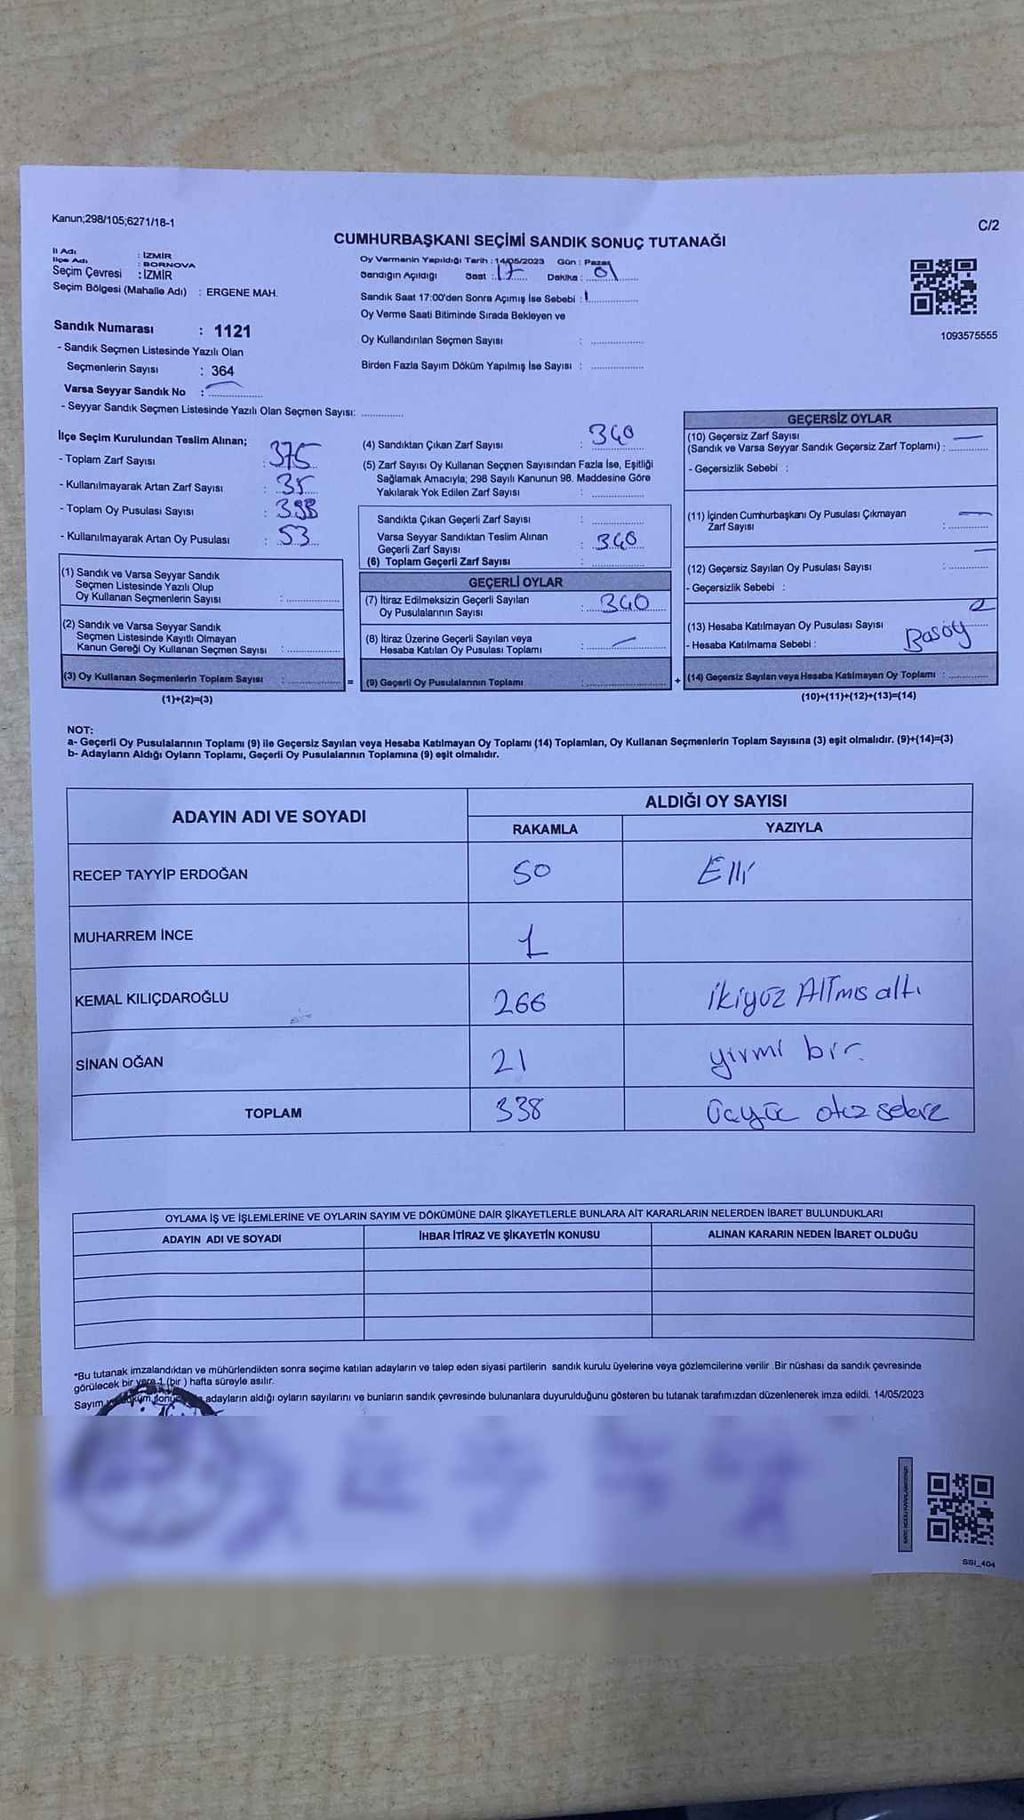 Kanun;298/105;6271/18-1
C/2
CUMHURBAŞKANI SEÇİMİ SANDIK SONUÇ TUTANAĞI
İl Adı : İZMİR
İlçe Adı : BORNOVA
Seçim Çevresi : İZMİR
Seçim Bölgesi (Mahalle Adı) : ERGENE MAH.
Oy Vermenin Yapıldığı Tarih : 14/05/2023 Gün : Pazar
Sandığın Açıldığı Saat : 17 Dakika : 01
Sandık Saat 17:00'den Sonra Açımış İse Sebebi :
Oy Verme Saati Bitiminde Sırada Bekleyen ve
Oy Kullandırılan Seçmen Sayısı :
Birden Fazla Sayım Döküm Yapılmış İse Sayısı :
1093575555
Sandık Numarası : 1121
- Sandık Seçmen Listesinde Yazılı Olan
Seçmenlerin Sayısı : 364
Varsa Seyyar Sandık No :
- Seyyar Sandık Seçmen Listesinde Yazılı Olan Seçmen Sayısı:
İlçe Seçim Kurulundan Teslim Alınan;
- Toplam Zarf Sayısı : 375
- Kullanılmayarak Artan Zarf Sayısı : 35
- Toplam Oy Pusulası Sayısı :
- Kullanılmayarak Artan Oy Pusulası : 53
(1) Sandık ve Varsa Seyyar Sandık
Seçmen Listesinde Yazılı Olup
Oy Kullanan Seçmenlerin Sayısı :
(2) Sandık ve Varsa Seyyar Sandık
Seçmen Listesinde Kayıtlı Olmayan
Kanun Gereği Oy Kullanan Seçmen Sayısı :
(3) Oy Kullanan Seçmenlerin Toplam Sayısı :
(1)+(2)=(3)
(4) Sandıktan Çıkan Zarf Sayısı : 340
(5) Zarf Sayısı Oy Kullanan Seçmen Sayısından Fazla İse, Eşitliği
Sağlamak Amacıyla; 298 Sayılı Kanunun 98. Maddesine Göre
Yakılarak Yok Edilen Zarf Sayısı :
Sandıkta Çıkan Geçerli Zarf Sayısı :
Varsa Seyyar Sandıktan Teslim Alınan
Geçerli Zarf Sayısı : 340
(6) Toplam Geçerli Zarf Sayısı :
GEÇERLİ OYLAR
(7) İtiraz Edilmeksizin Geçerli Sayılan
Oy Pusulalarının Sayısı : 340
(8) İtiraz Üzerine Geçerli Sayılan veya
Hesaba Katılan Oy Pusulası Toplamı :
= (9) Geçerli Oy Pusulalarının Toplamı : +
GEÇERSİZ OYLAR
(10) Geçersiz Zarf Sayısı
(Sandık ve Varsa Seyyar Sandık Geçersiz Zarf Toplamı) :
- Geçersizlik Sebebi :
(11) İçinden Cumhurbaşkanı Oy Pusulası Çıkmayan
Zarf Sayısı :
(12) Geçersiz Sayılan Oy Pusulası Sayısı :
- Geçersizlik Sebebi :
(13) Hesaba Katılmayan Oy Pusulası Sayısı 2
- Hesaba Katılmama Sebebi : Basoy
(14) Geçersiz Sayılan veya Hesaba Katılmayan Oy Toplamı :
(10)+(11)+(12)+(13)=(14)
NOT:
a- Geçerli Oy Pusulalarının Toplamı (9) ile Geçersiz Sayılan veya Hesaba Katılmayan Oy Toplamı (14) Toplamları, Oy Kullanan Seçmenlerin Toplam Sayısına (3) eşit olmalıdır. (9)+(14)=(3)
b- Adayların Aldığı Oyların Toplamı, Geçerli Oy Pusulalarının Toplamına (9) eşit olmalıdır.
ADAYIN ADI VE SOYADI
ALDIĞI OY SAYISI
RAKAMLA YAZIYLA
RECEP TAYYİP ERDOĞAN 50 Elli
MUHARREM İNCE 1
KEMAL KILIÇDAROĞLU 266 ikiyüz Altmıs altı
SİNAN OĞAN 21 yirmi bir
TOPLAM 338 üçyüz otuz sekiz
OYLAMA İŞ VE İŞLEMLERİNE VE OYLARIN SAYIM VE DÖKÜMÜNE DAİR ŞİKAYETLERLE BUNLARA AİT KARARLARIN NELERDEN İBARET BULUNDUKLARI
ADAYIN ADI VE SOYADI İHBAR İTİRAZ VE ŞİKAYETİN KONUSU ALINAN KARARIN NEDEN İBARET OLDUĞU
*Bu tutanak imzalandıktan ve mühürlendikten sonra seçime katılan adayların ve talep eden siyasi partilerin sandık kurulu üyelerine veya gözlemcilerine verilir .Bir nüshası da sandık çevresinde
görülecek bir yere 1 (bir ) hafta süreyle asılır.
Sayım adayların aldığı oyların sayılarını ve bunların sandık çevresinde bulunanlara duyurulduğunu gösteren bu tutanak tarafımızdan düzenlenerek imza edildi. 14/05/2023
SSI_404